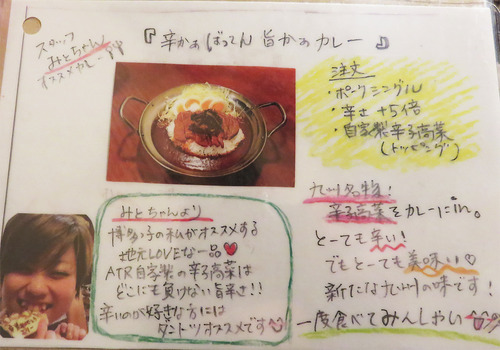 『辛かぁばってん 旨かぁカレー』
スタッフ
みとちゃん
オススメカレー!!
注文
・ポークシングル
・辛さ +5倍
・自家製辛子高菜
(トッピング)
みとちゃんより
博多っ子の私がオススメする
地元LOVEな一品♥
ATR自家製の辛子高菜は
どこにも負けない旨辛さ!!
辛いのが好きな方には
ダントツオススメです
九州名物!
辛子高菜をカレーにin。
とーっても辛い!
でもとーっても美味い♡
新たな九州の味です!
一度食べてみんしゃい